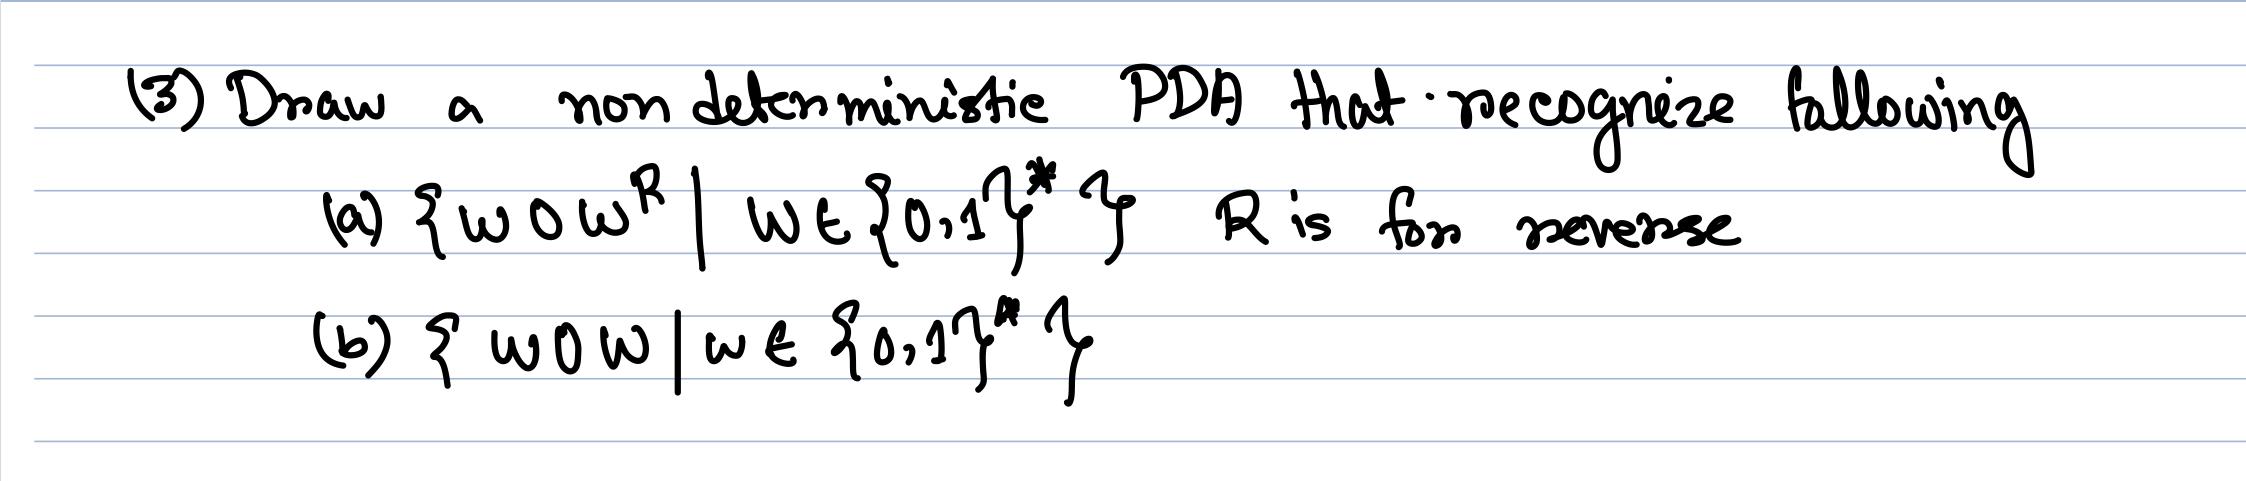 (3) Draw a non deterministic PDA that recognize following
(a) {w0w^R | w∈{0,1}^*} R is for reverse
(b) {w0w | w∈{0,1}^*}